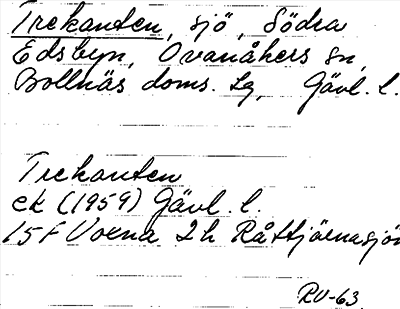 Trekanten, sjö, Södra
Edsbyn, Ovanåkers sn,
Bollnäs doms. sg, Gävl. l.
Trekanten
ek (1959) Gävl. l.
15F Voxna 2h Råttjärnasjön
RU-63